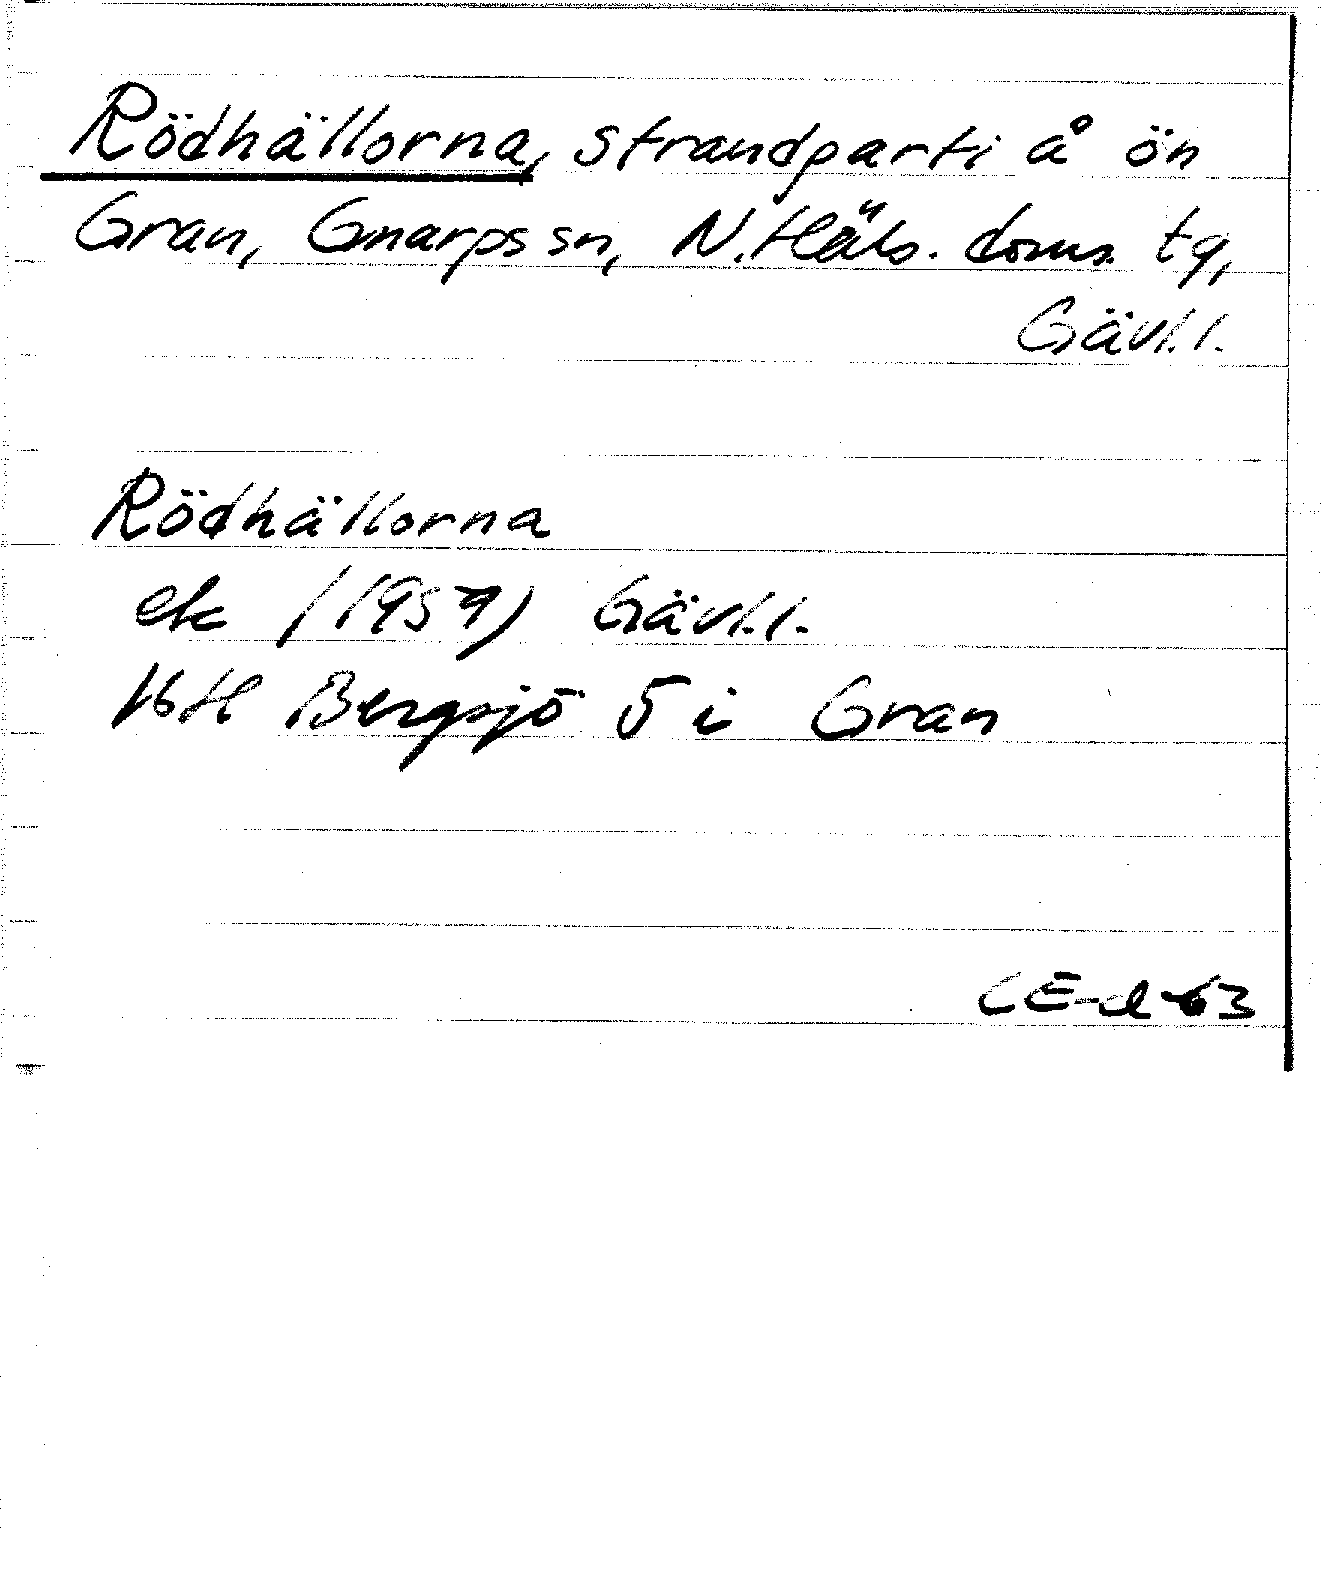 Rödhällorna, strandparti å ön
Gran, Gnarps sn, N. Häls. doms. tg,
Gävl. l.
Rödhällorna
ek (1959) Gävl. l.
16H Bergsjö 5 i Gran
CE-d-63